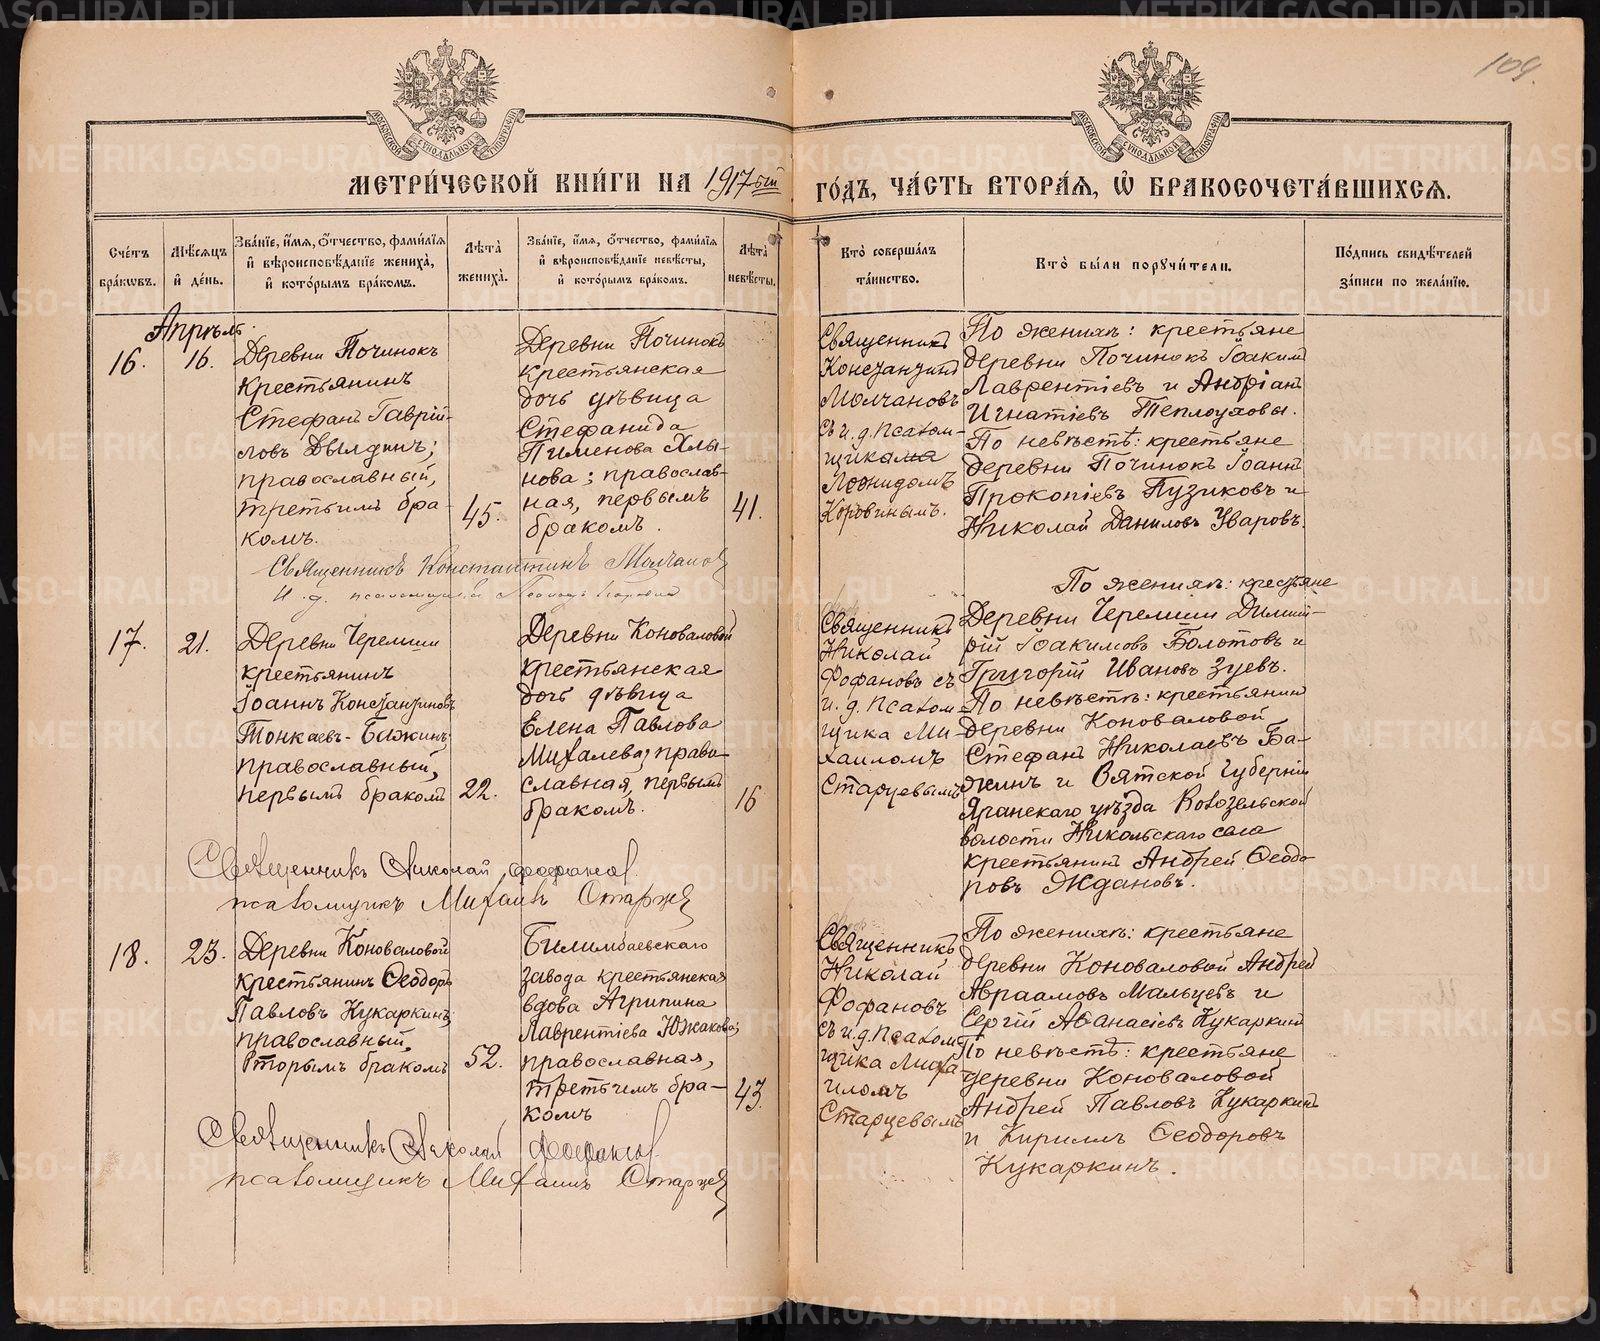 109.
МОСКОВСКОЙ СѴНОДАЛЬНОЙ ТИПОГРАФІИ
МОСКОВСКОЙ СѴНОДАЛЬНОЙ ТИПОГРАФІИ
МЕТРИ́ЧЕСКОЙ КНИ́ГИ НА 1917ый ГО́ДЪ, ЧА́СТЬ ВТОРА́Я, Ѡ҆ БРАКОСОЧЕТА́ВШИХСЯ.
Сче́тъ
бра́кѡвъ.
Мѣ́сяцъ
и҆ де́нь.
Зва́нїе, и҆́мя, о҆́тчество, фами́лїя
и҆ вѣроисповѣ́данїе жениха̀,
и҆ кото́рымъ бра́комъ.
Лѣ́та
жениха̀.
Зва́нїе, и҆́мя, о҆́тчество, фами́лїя
и҆ вѣроисповѣ́данїе невѣ́сты,
и҆ кото́рымъ бра́комъ.
Лѣ́та
невѣ́сты.
Кто̀ соверша́лъ
та́инство.
Кто̀ бы́ли поручи́тели.
По́дпись свидѣ́телей
за́писи по жела́нїю.
Апрѣль.
16.
16.
Деревни Починокъ
крестьянинъ
Стефанъ Гаврій-
ловъ Дылдинъ;
православный,
третьимъ бра-
комъ.
45.
Деревни Починокъ
крестьянская
дочь дѣвица
Стефанида
Пименова Хлы-
нова; православ-
ная, первымъ
бракомъ.
41.
Священникъ
Константинъ
Молчановъ
съ и.д. псалом-
щика
Леонидомъ
Коровинымъ.
По женихѣ: крестьяне
деревни Починокъ Іоакимъ
Лаврентіевъ и Андріанъ
Игнатіевъ Теплоуховы.
По невѣстѣ: крестьяне
деревни Починокъ Іоаннъ
Прокопіевъ Пузиковъ и
Николай Даниловъ Уваровъ.
Священникъ Константинъ Молчановъ
И. д. псаломщика Леонидъ Коровинъ
17.
21.
Деревни Черемши
крестьянинъ
Іоаннъ Константиновъ
Тонкаевъ-Бажинъ,
православный,
первымъ бракомъ
22.
Деревни Коноваловой
крестьянская
дочь дѣвица
Елена Павлова
Михалева; право-
славная, первымъ
бракомъ.
16
Священникъ
Николай
Фофановъ съ
и. д. псалом-
щика Ми-
хаиломъ
Старцевымъ
По женихѣ: крестьяне
Деревни Черемши Дими-
рій Іоакимовъ Болотовъ и
Григорій Ивановъ Зуевъ.
По невѣстѣ: крестьянинъ
деревни Коноваловой
Стефанъ Николаевъ Ба-
жинъ и Вятской губерніи
Яранскаго уѣзда
волости Никольскаго села
крестьянинъ Андрей Ѳеодо-
ровъ Ждановъ.
Священникъ Николай Фофановъ.
псаломщикъ Михаилъ Старцевъ
18.
23.
Деревни Коноваловой
крестьянинъ Ѳеодоръ
Павловъ Кукаркинъ;
православный,
вторымъ бракомъ
52.
Билимбаевскаго
завода крестьянская
вдова Агрипина
Лаврентіева Южакова;
православная,
третьимъ бра-
комъ
43.
Священникъ
Николай
Фофановъ
съ и.д. псалом-
щика Миха-
иломъ
Старцевымъ
По женихѣ: крестьяне
деревни Коноваловой Андрей
Авраамовъ Мальцевъ и
Сергій Аѳанасіевъ Кукаркинъ
По невѣстѣ: крестьяне
деревни Коноваловой
Андрей Павловъ Кукаркинъ
и Кириллъ Ѳеодоровъ
Кукаркинъ.
Священникъ Николай Фофановъ.
псаломщикъ Михаилъ Старцевъ
METRIKI.GASO-URAL.RU